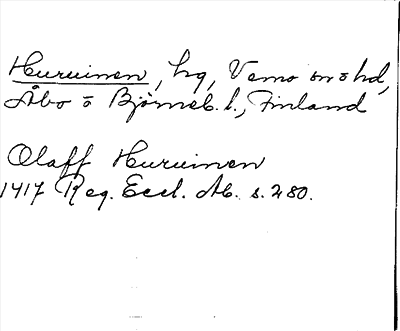 Huruinen, hg, Vemo sn o hd,
Åbo o Björneb. l., Finland
Olaff Huruinen
1417 Reg. Eccl. Ab. s. 280.